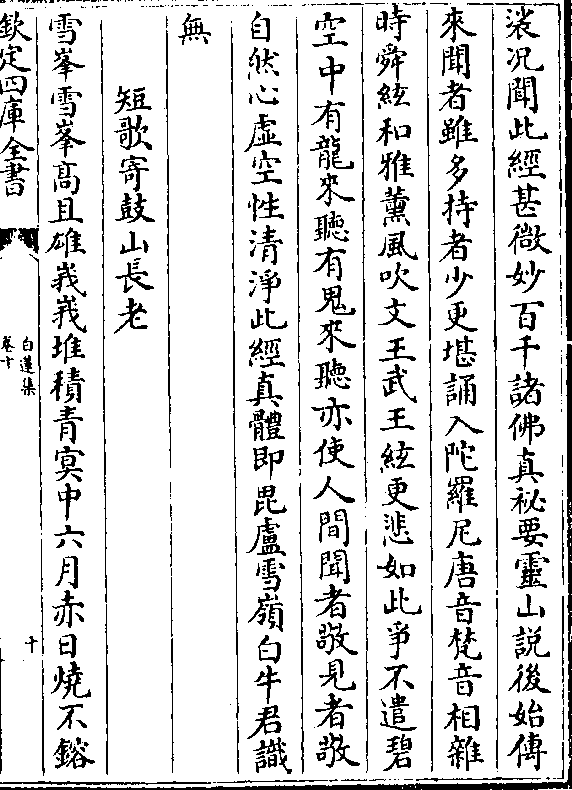 裟況聞此經甚微妙百千諸佛真祕要靈山説後始傳
來聞者雖多持者少更堪誦入陀羅尼唐音梵音相雜
時舜絃和雅薰風吹文王武王絃更悲如此爭不遣碧
空中有龍來聽有鬼來聽亦使人間聞者敬見者敬
自然心虛空性清淨此經真體即毘盧雪嶺白牛君識
無
短歌寄鼓山長老
雪峯雪峯髙且雄峩峩堆積青㝠中六月赤日燒不鎔
欽定四庫全書
白蓮集
卷十
十